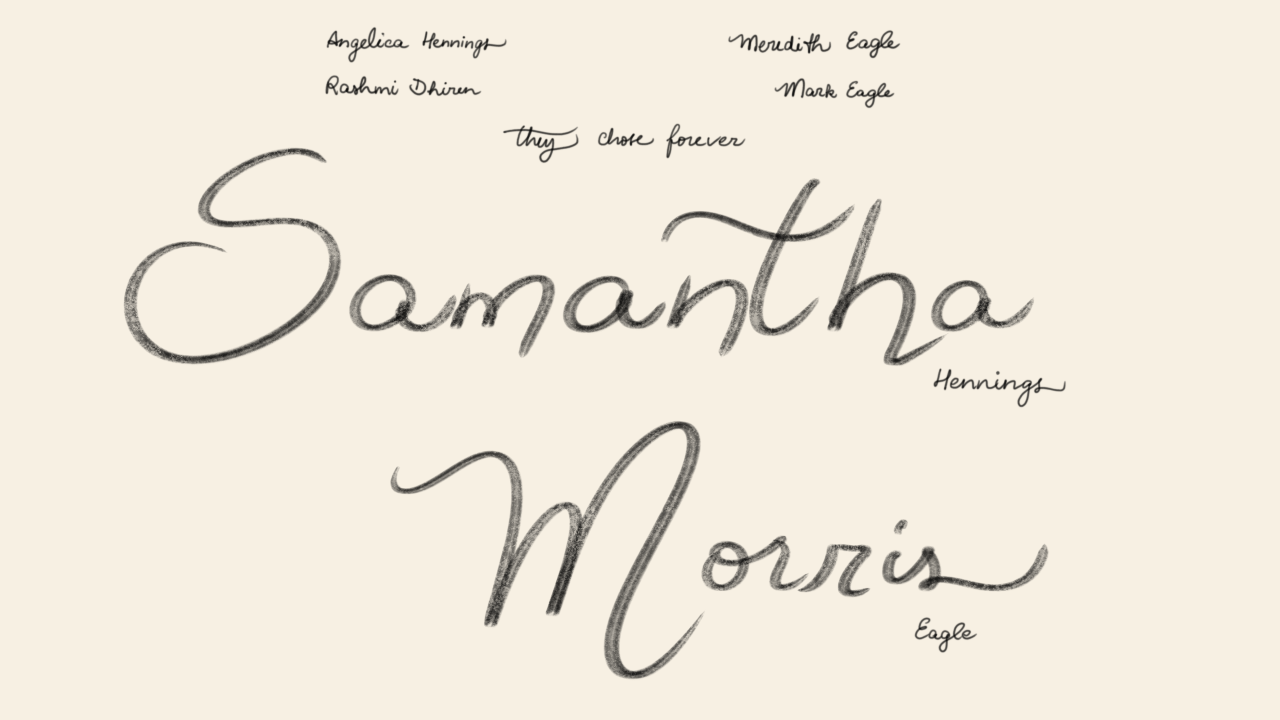 Angelica Hennings Meredith Eagle
Rashmi Dhiren Mark Eagle
they chose forever
Samantha
Hennings
Morris
Eagle